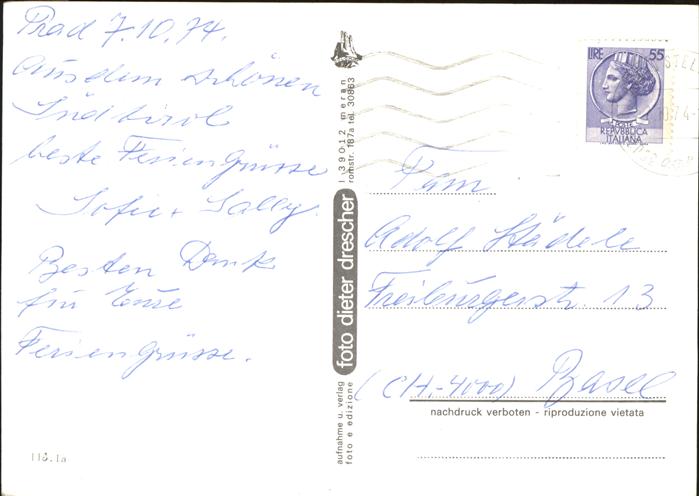 Prad 7.10.74.
Aus dem schönen
Südtirol
beste Feriengrüsse
Sofie + Sally.
Besten Dank
für Eure
Feriengrüsse.
118.1a
I 39012 meran
romstr. 187a tel. 30863
foto dieter drescher
aufnahme u. verlag
foto e edizione
LIRE 55
POSTE
REPVBBLICA
ITALIANA
Fam
Adolf Städele
Freiburgerstr. 13
(CH-4000) Basel
nachdruck verboten - riproduzione vietata